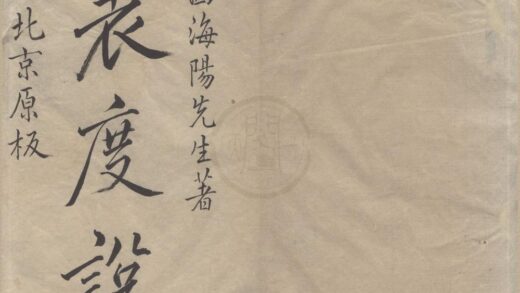 海陽先生著
表度說
北京原板